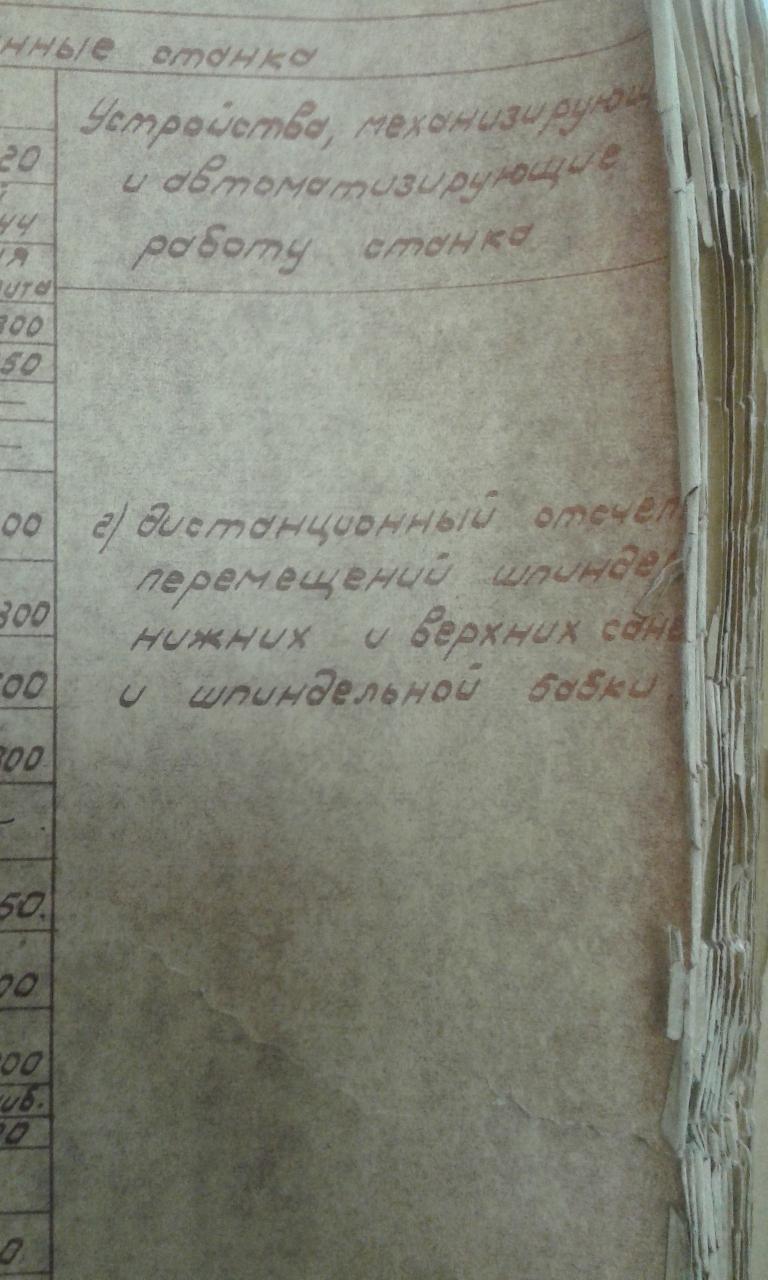 нные станка
Устройства, механизирующ
и автоматизирующие
работу станка
20
44
ия
ита
300
50
—
—
г) дистанционный отсчет
00
перемещений шпинделя
нижних и верхних сане
300
и шпиндельной бабки.
500
300
—
50.
00
00
иб.
0
0.